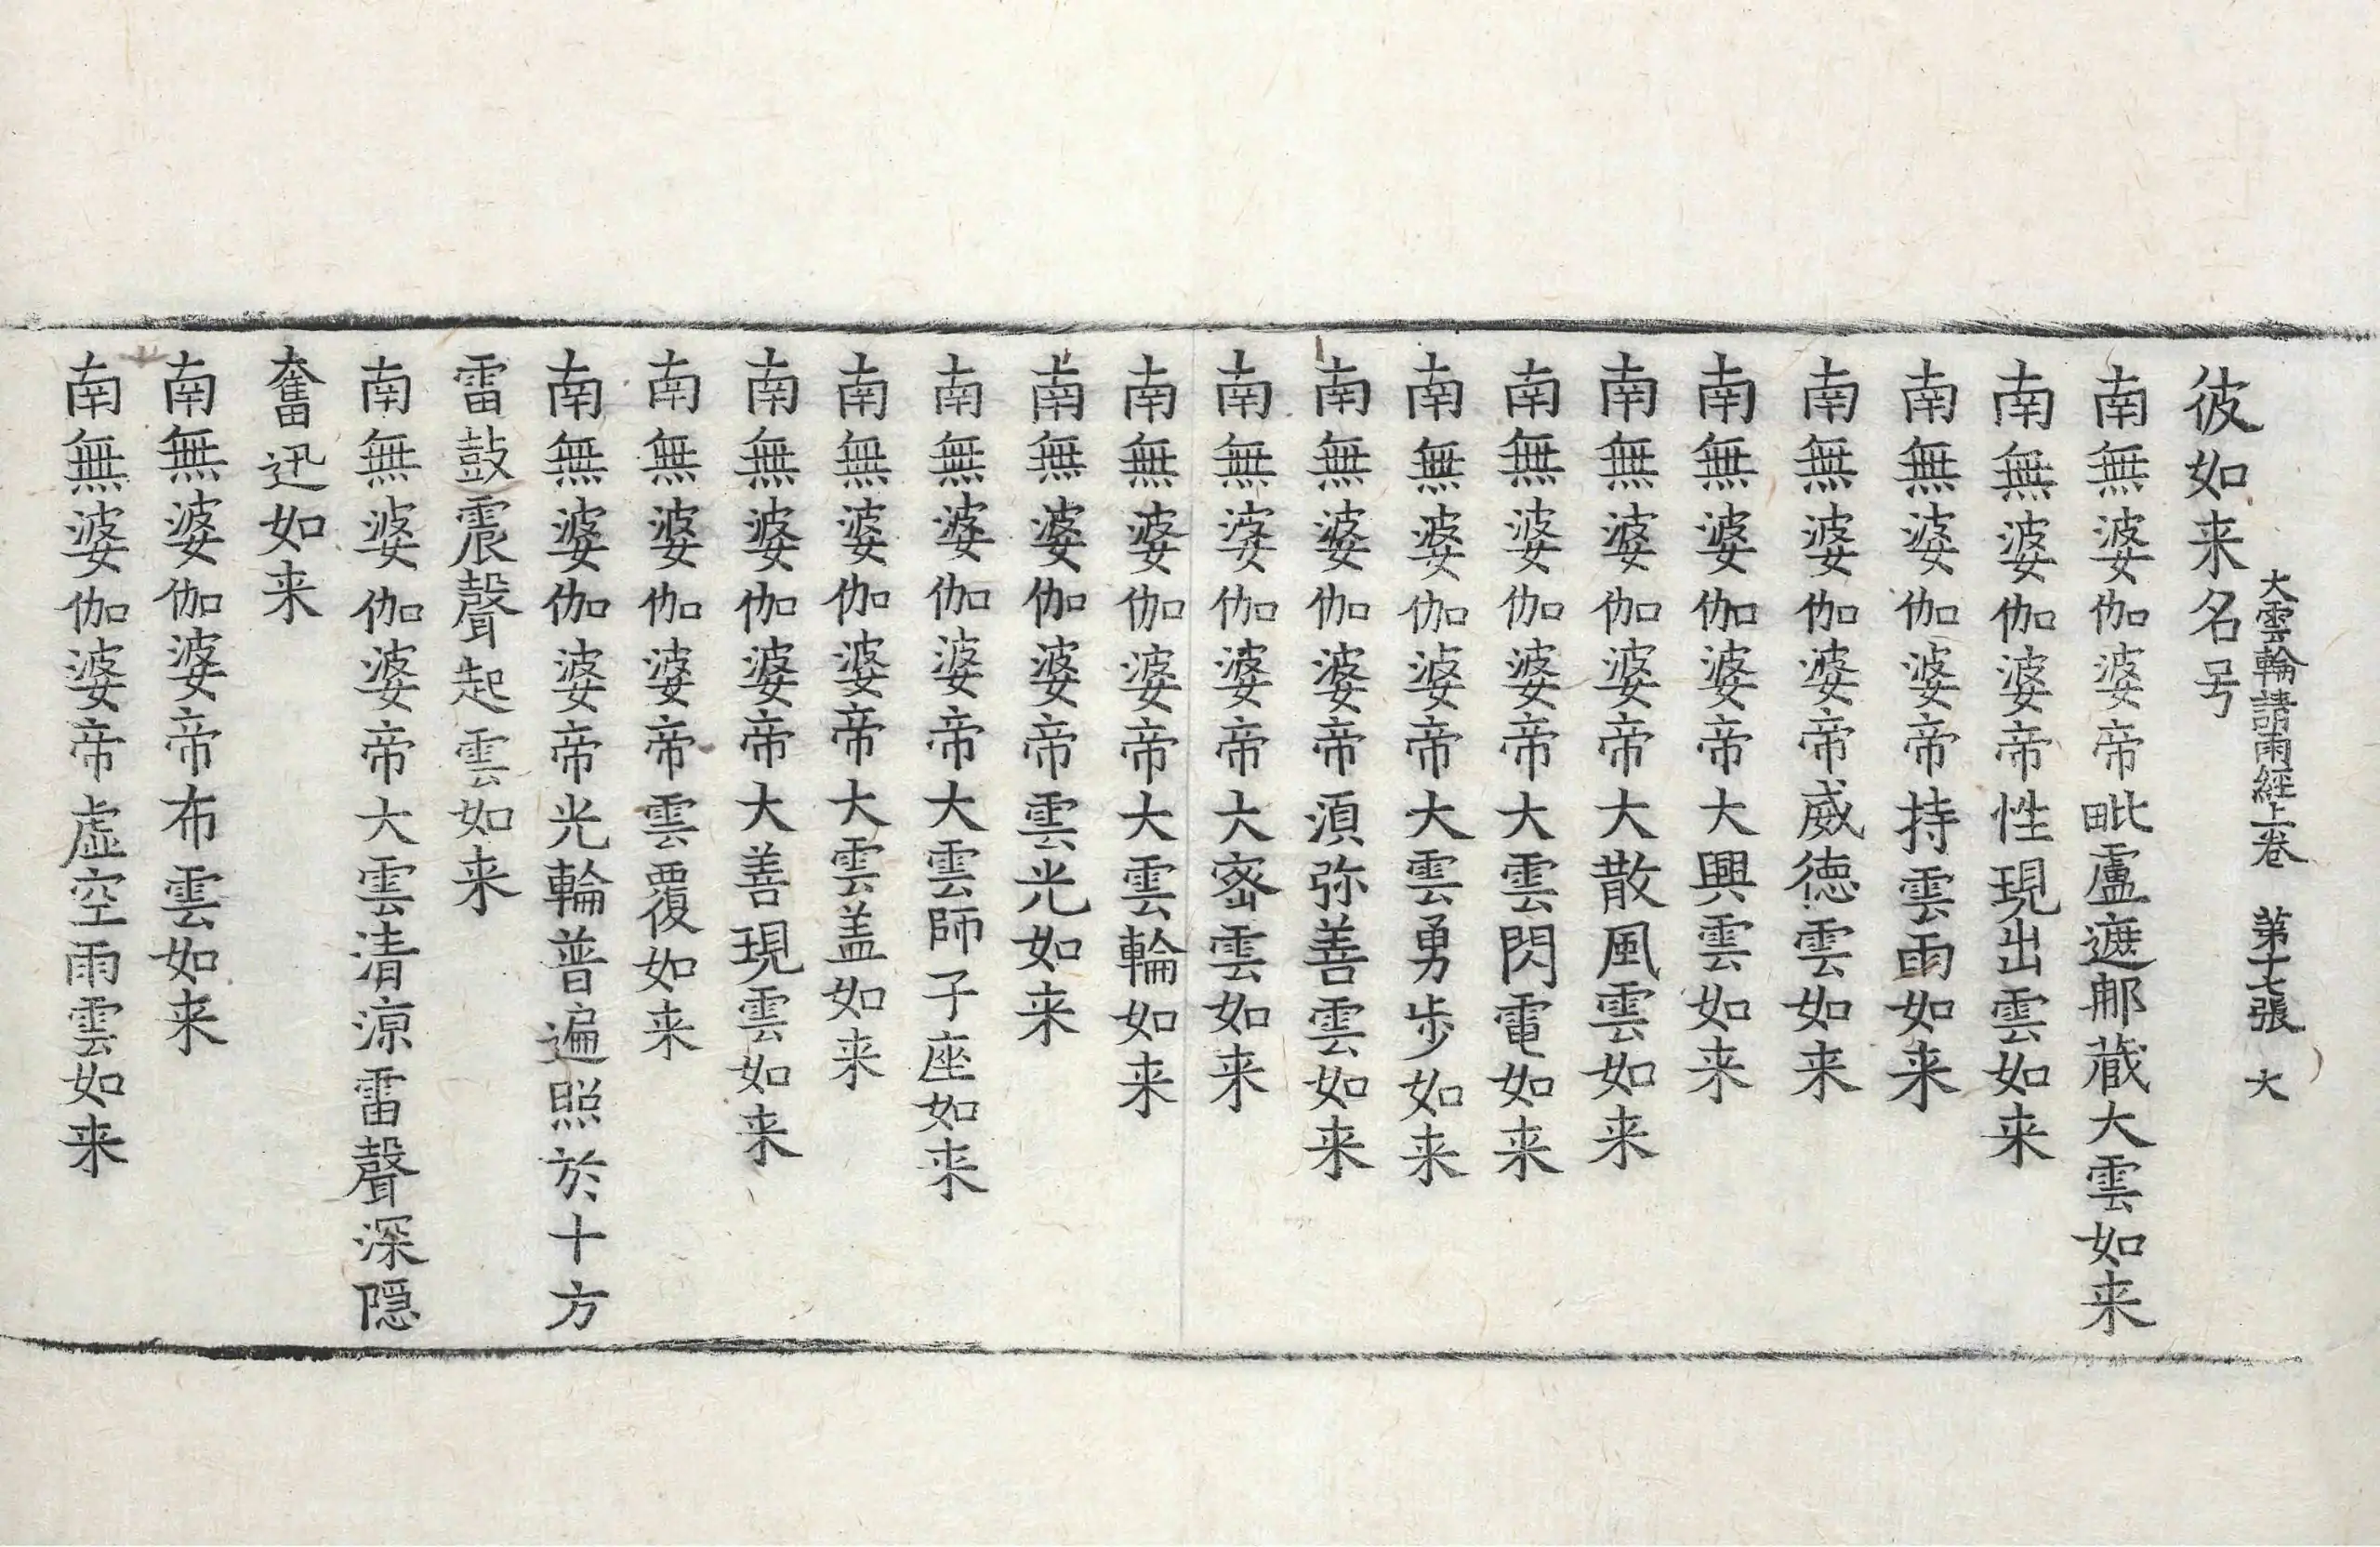 大雲輪請雨経上卷 第十七張 大
彼如来名号
南無婆伽婆帝毗盧遮那蔵大雲如来
南無婆伽婆帝性現出雲如来
南無婆伽婆帝持雲雨如来
南無婆伽婆帝威徳雲如来
南無婆伽婆帝大興雲如来
南無婆伽婆帝大散風雲如来
南無婆伽婆帝大雲閃電如来
南無婆伽婆帝大雲勇步如来
南無婆伽婆帝湏弥善雲如来
南無婆伽婆帝大宻雲如来
南無婆伽婆帝大雲輪如来
南無婆伽婆帝雲光如来
南無婆伽婆帝大雲師子座如来
南無婆伽婆帝大雲盖如来
南無婆伽婆帝大善現雲如来
南無婆伽婆帝雲覆如来
南無婆伽婆帝光輪普遍照於十方
雷鼓震聲起雲如来
南無婆伽婆帝大雲清涼雷聲深隠
奮迅如来
南無婆伽婆帝布雲如来
南無婆伽婆帝虚空雨雲如来